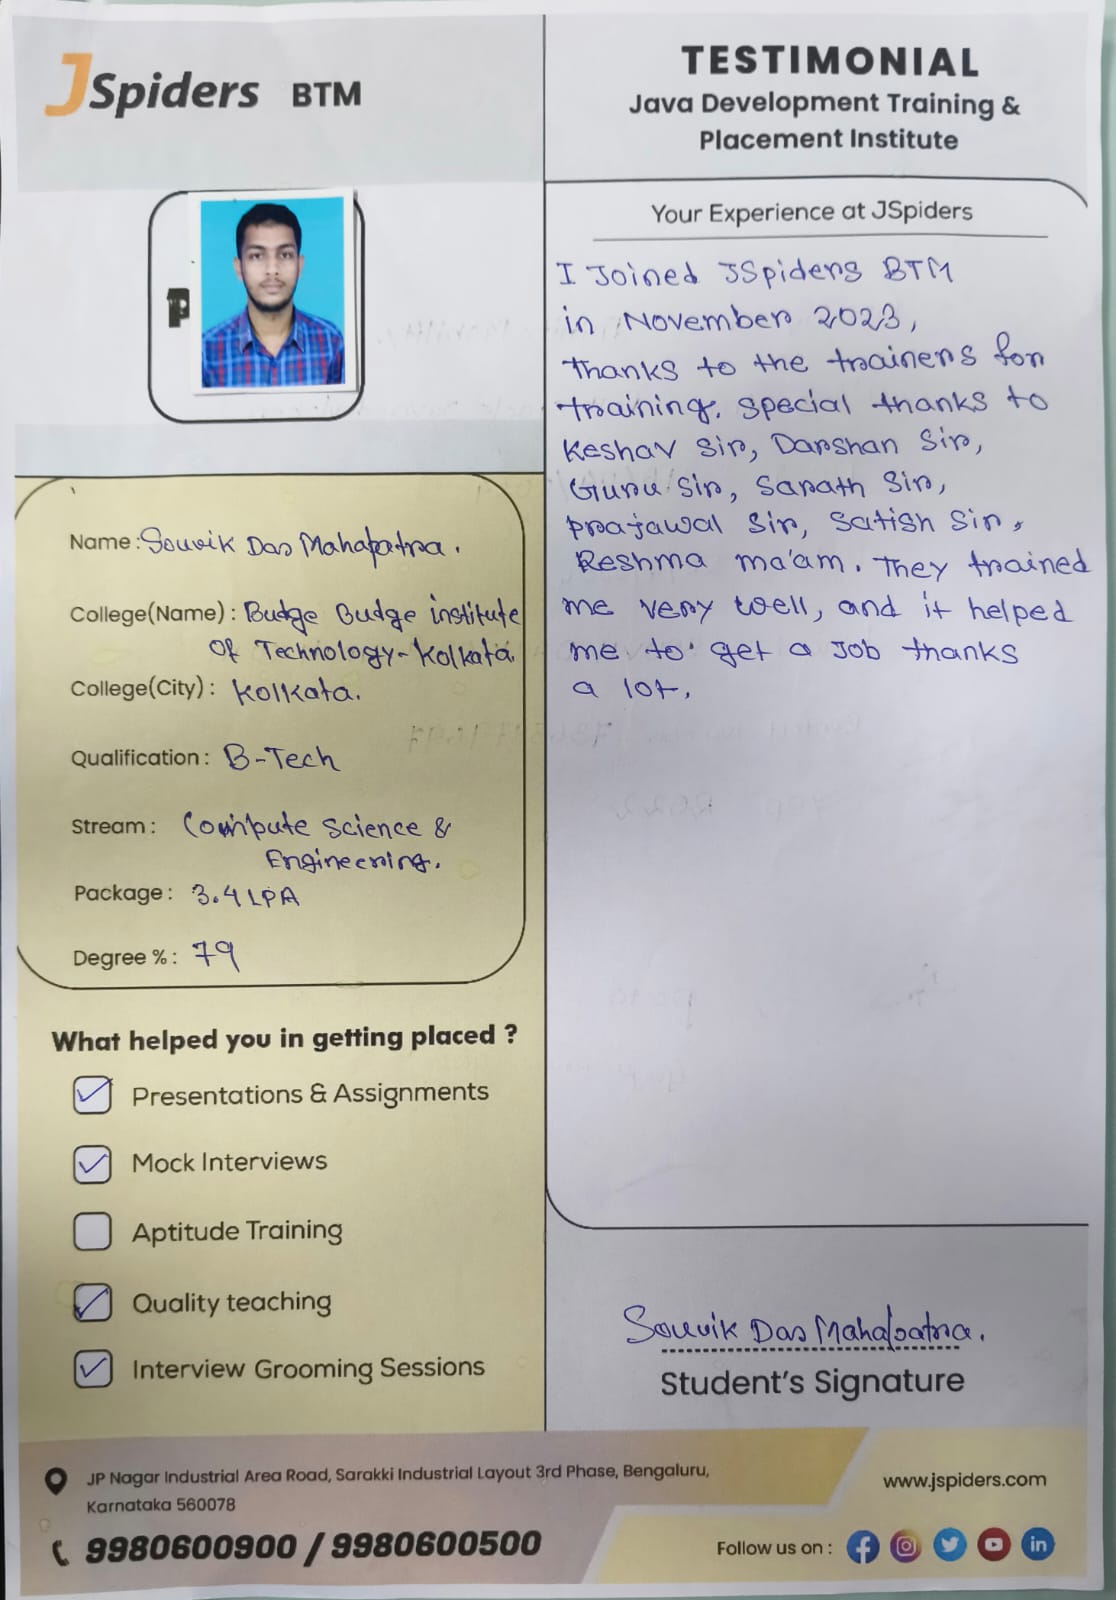 JSpiders BTM
TESTIMONIAL
Java Development Training &
Placement Institute
P
Name : Souvik Das Mahapatra.
College(Name) : Budge Budge institute
Of Technology-Kolkata
College(City) : Kolkata.
Qualification : B-Tech
Stream : Compute Science &
Engineering.
Package : 3.4 LPA
Degree % : 79
What helped you in getting placed ?
Presentations & Assignments
Mock Interviews
Aptitude Training
Quality teaching
Interview Grooming Sessions
Your Experience at JSpiders
I Joined JSpiders BTM
in November 2023,
Thanks to the trainers for
training. Special thanks to
Keshav Sir, Darshan Sir,
Guru Sir, Sarath Sir,
Prajawal Sir, Satish Sir,
Reshma ma'am. They trained
me very well, and it helped
me to get a Job thanks
a lot.
Souvik Das Mahapatra.
Student's Signature
JP Nagar Industrial Area Road, Sarakki Industrial Layout 3rd Phase, Bengaluru,
Karnataka 560078
9980600900 / 9980600500
www.jspiders.com
Follow us on :